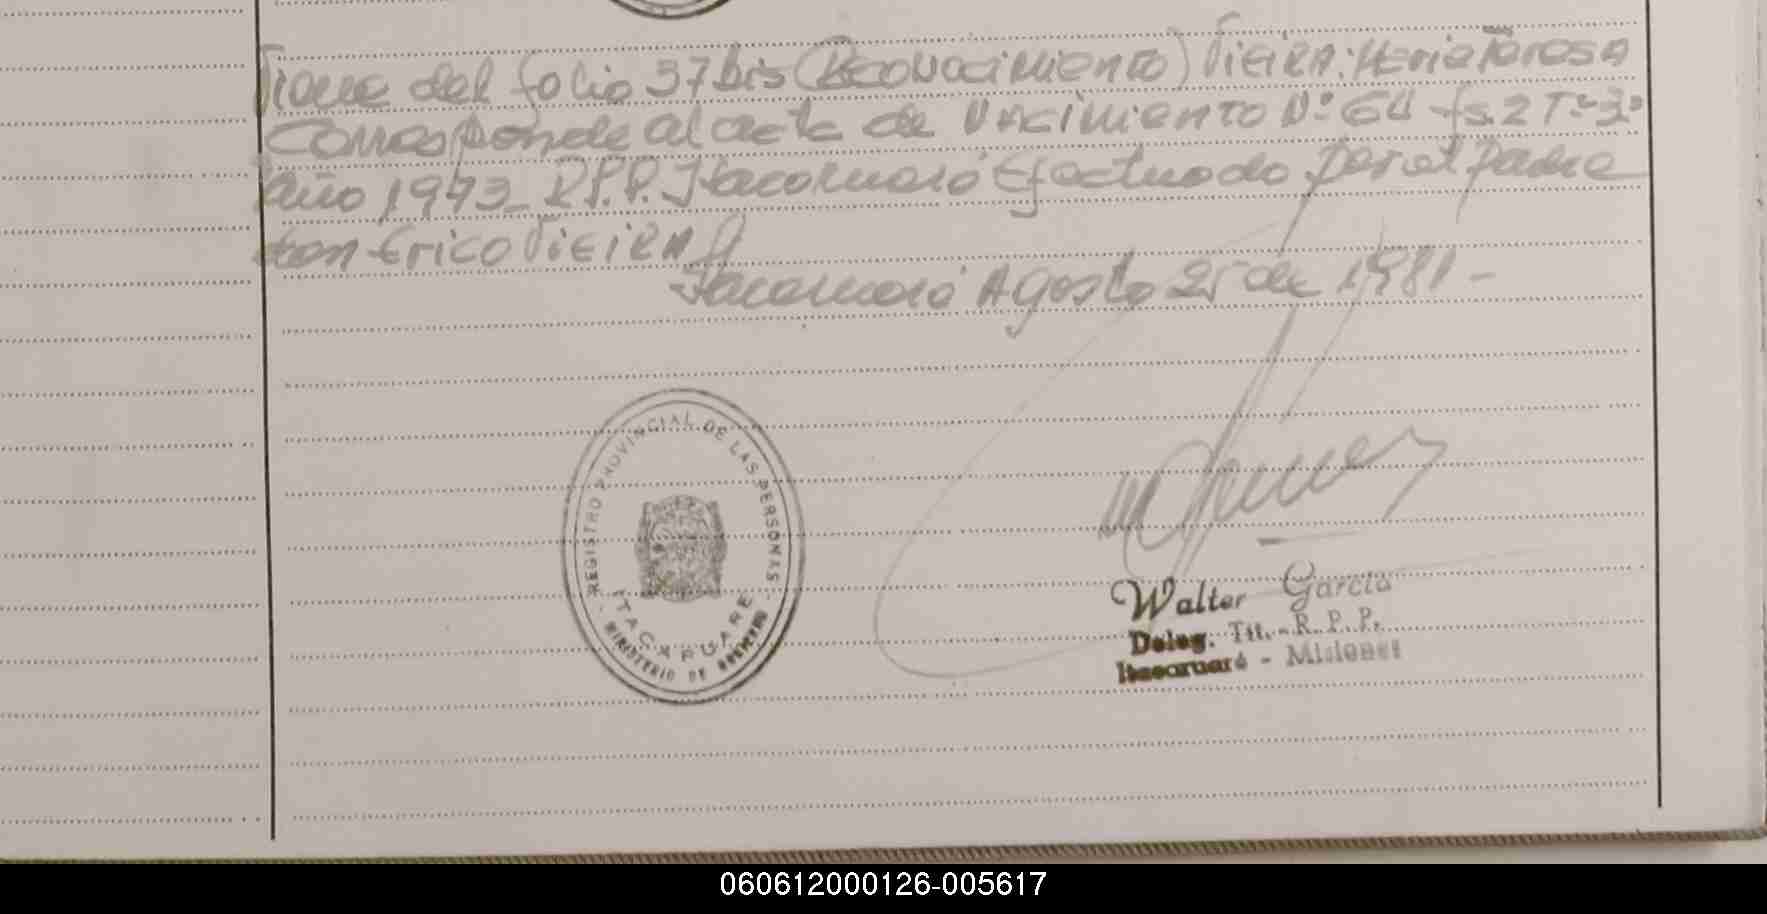 Viene del folio 37 bis (Reconocimiento) VIEIRA: Maria Teresa
Corresponde al acta de Nacimiento Nº 64 fs. 2 Tº 3º
Año 1973_ R.P.P. Itacaruaré Efectuado por el padre
don Erico VIEIRA
Itacaruaré Agosto 25 de 1981 -
REGISTRO PROVINCIAL DE LAS PERSONAS
ITACARUARE
MINISTERIO DE GOBIERNO
Walter García
Deleg. Tit. - R. P. P.
Itacaruaré - Misiones
060612000126-005617